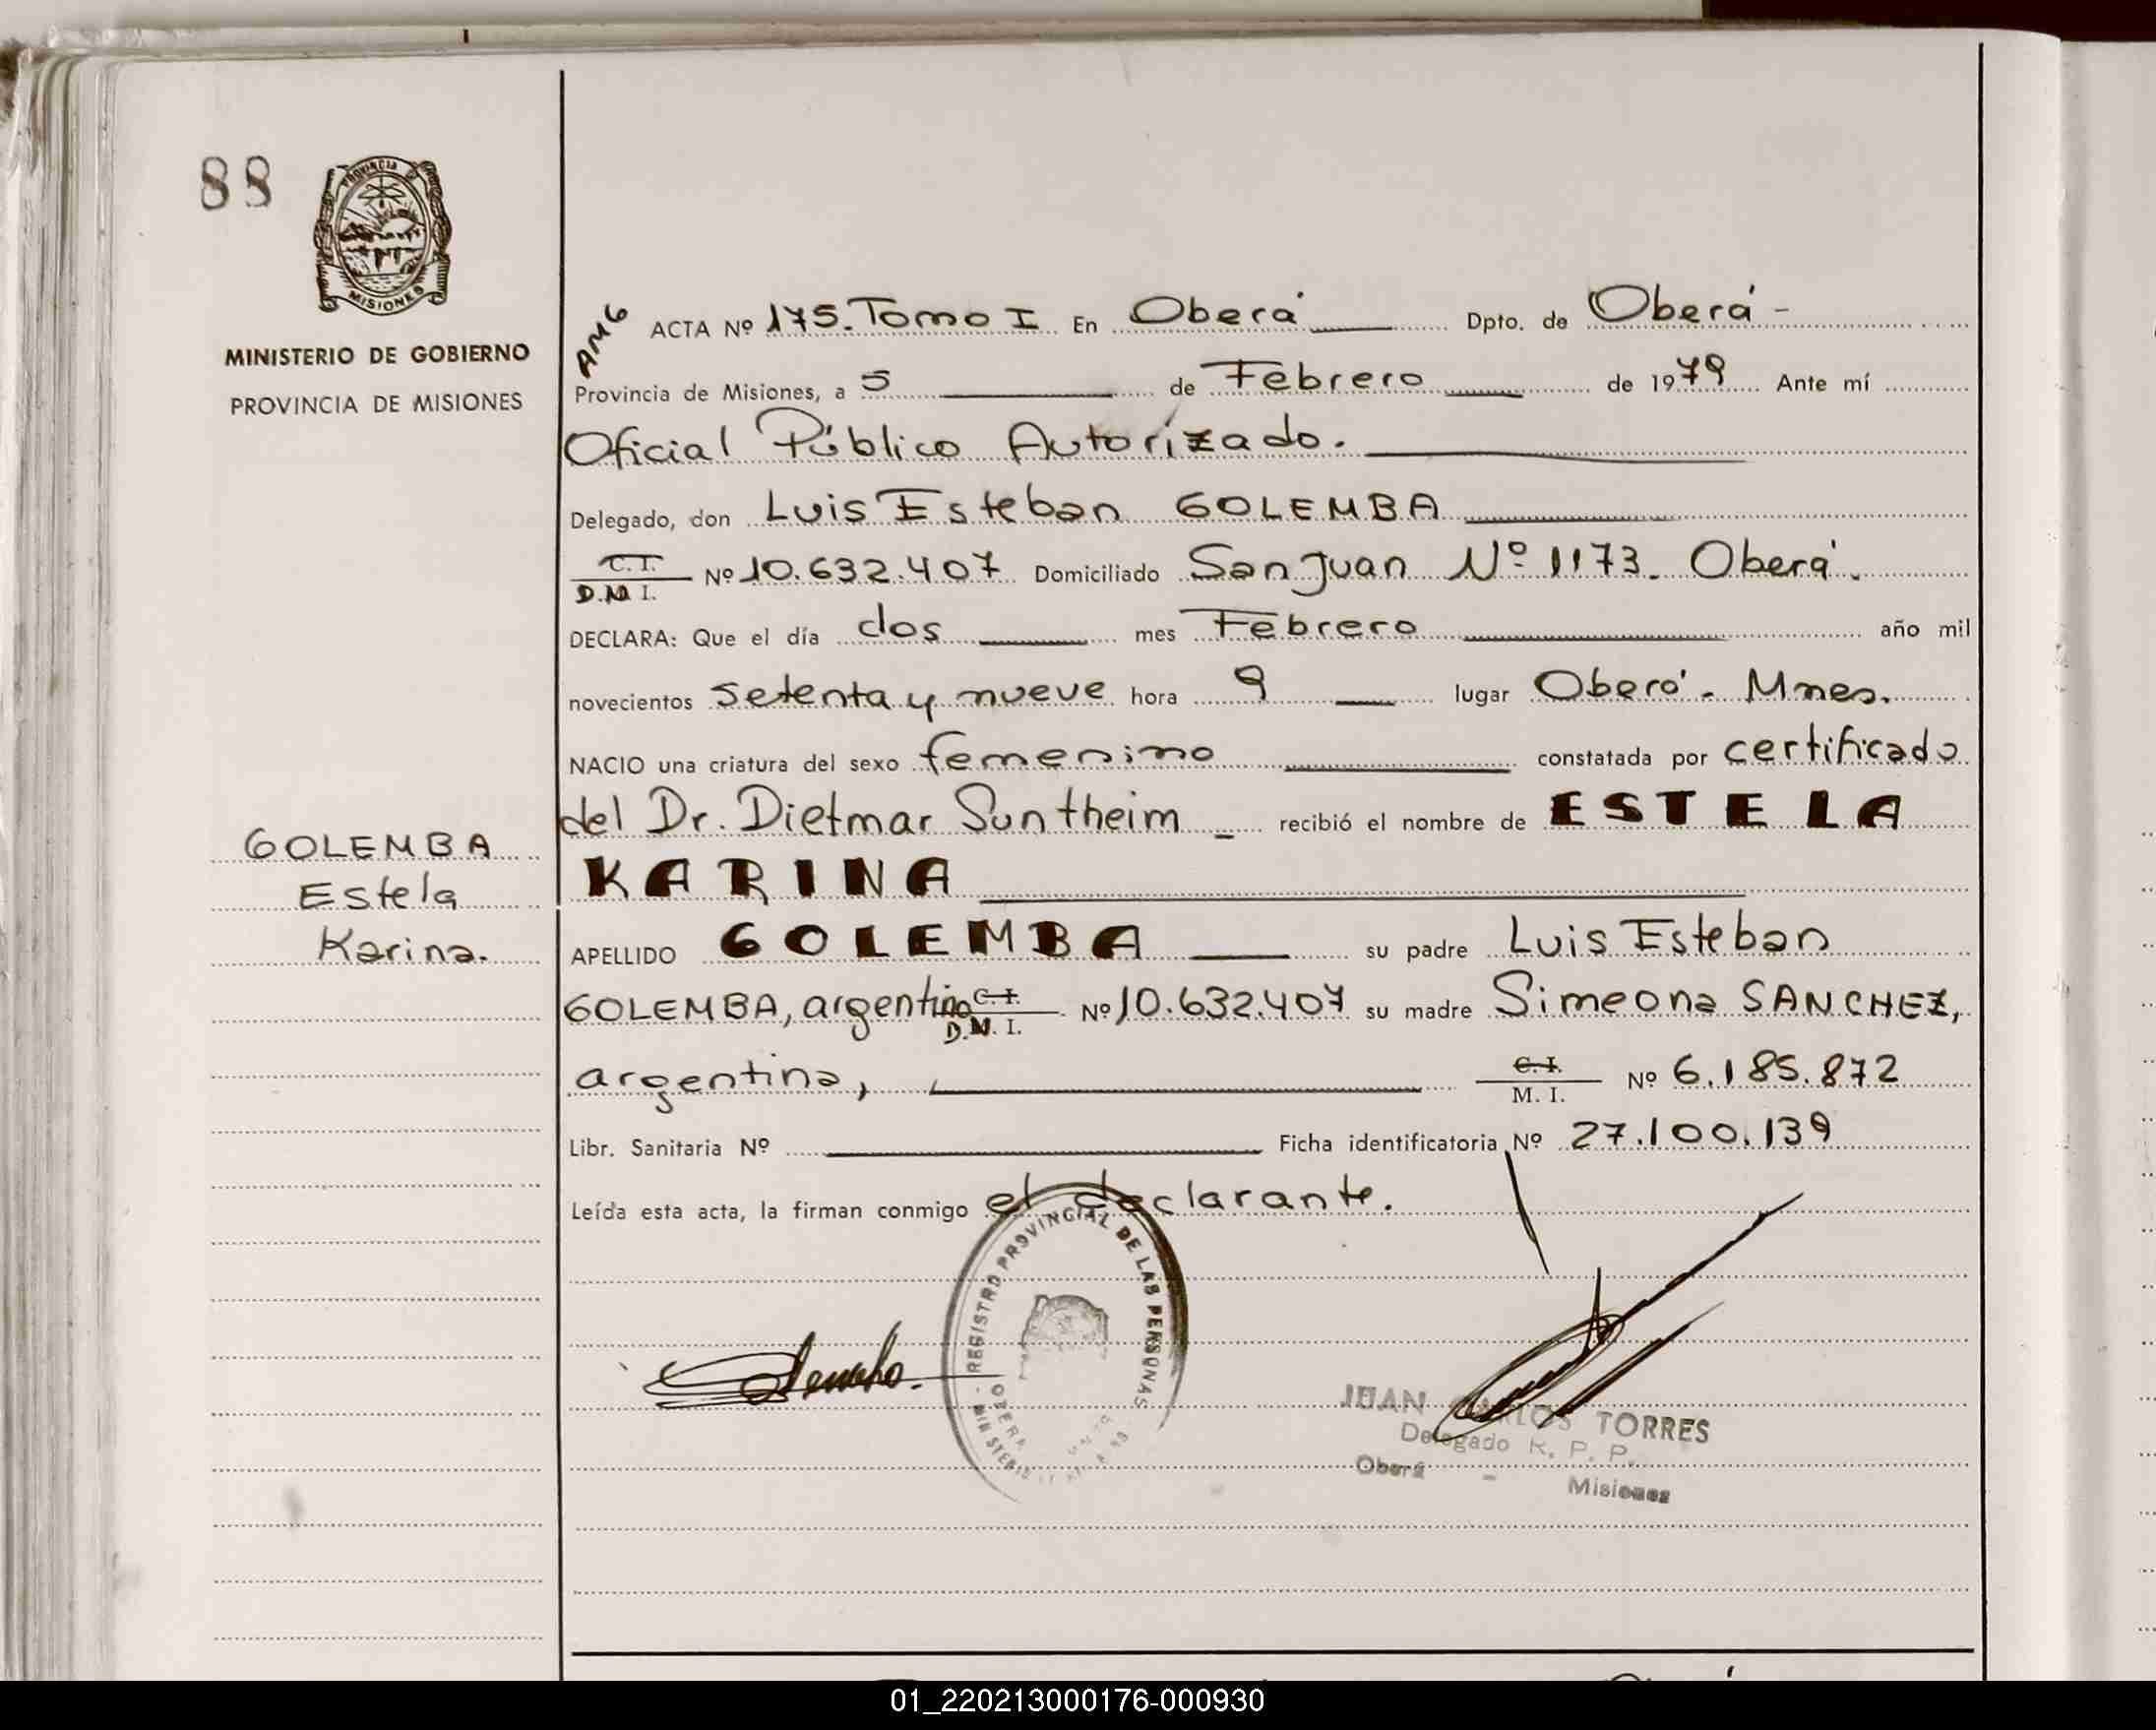 88
PROVINCIA D
MISIONES
MINISTERIO DE GOBIERNO
PROVINCIA DE MISIONES
GOLEMBA
Estela
Karina.
AMG
ACTA Nº 175. Tomo I En Oberá Dpto. de Oberá -
Provincia de Misiones, a 5 de Febrero de 1979 Ante mí
Oficial Público Autorízado.
Delegado, don Luis Esteban GOLEMBA
C.I. Nº 10.632.407 Domiciliado San Juan Nº 1173. Oberá.
D.M I.
DECLARA: Que el día dos mes Febrero año mil
novecientos setenta y nueve hora 9 lugar Oberá. Mnes.
NACIO una criatura del sexo femenino constatada por certificado
del Dr. Dietmar Suntheim - recibió el nombre de ESTELA
KARINA
APELLIDO GOLEMBA su padre Luis Esteban
GOLEMBA, argentino C.I. Nº 10.632.407 su madre Simeona SANCHEZ,
D.M. I.
argentina, C.I. Nº 6.185.872
M. I.
Libr. Sanitaria Nº Ficha identificatoria Nº 27.100.139
Leída esta acta, la firman conmigo el declarante.
REGISTRO PROVINCIAL DE LAS PERSONAS
OBERA
JUAN CARLOS TORRES
Delegado R. P. P.
Oberá - Misiones
01_220213000176-000930